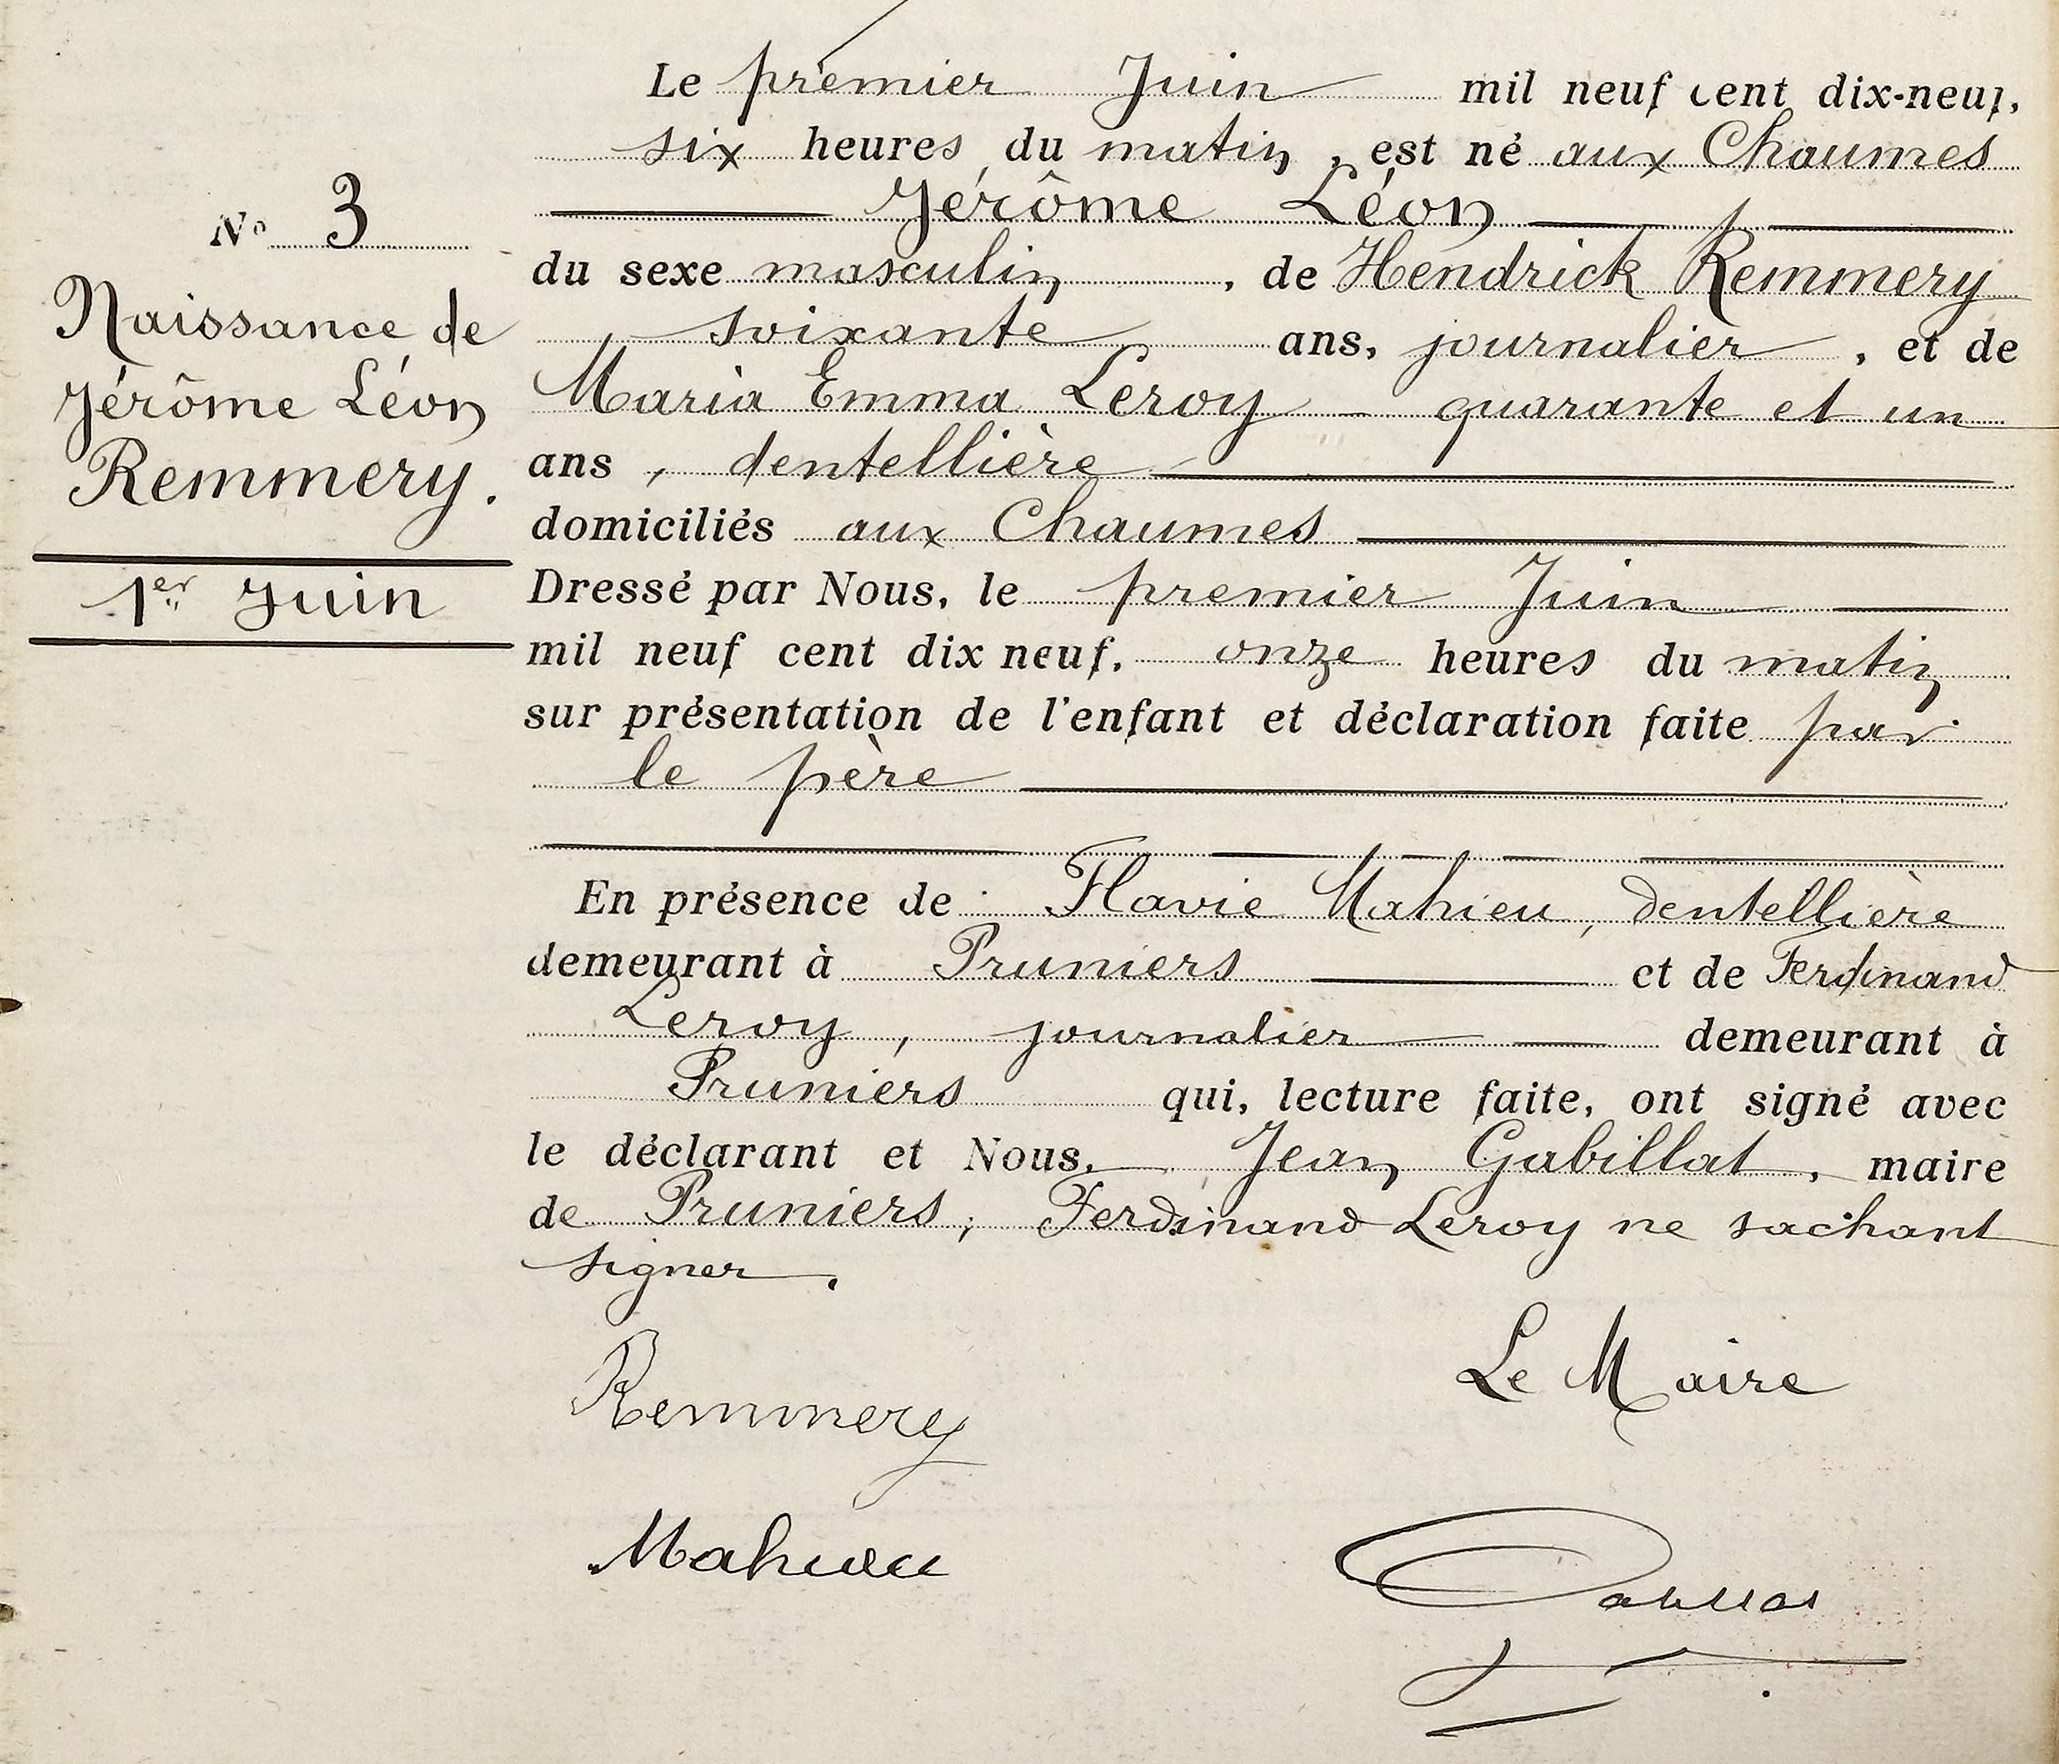 Le premier Juin mil neuf cent dix-neuf,
six heures du matin, est né aux Chaumes
Jérôme Léon
du sexe masculin, de Hendrick Remmery
soixante ans, journalier, et de
Maria Emma Leroy quarante et un
ans, dentellière
domiciliés aux Chaumes
Dressé par Nous, le premier Juin
mil neuf cent dix neuf, onze heures du matin
sur présentation de l'enfant et déclaration faite par
le père
En présence de Flavie Mahieu, dentellière
demeurant à Pruniers et de Ferdinand
Leroy, journalier demeurant à
Pruniers qui, lecture faite, ont signé avec
le déclarant et Nous, Jean Gabillat, maire
de Pruniers, Ferdinand Leroy ne sachant
signer.
No 3
Naissance de
Jérôme Léon
Remmery.
1er Juin
Remmery
Le Maire
Mahieu
Gabillat